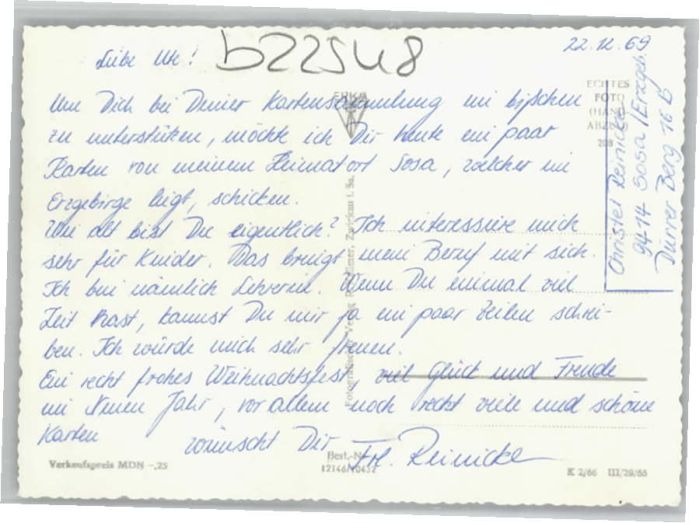 b22548
22.12.69
Liebe Ute!
Um Dich bei Deiner Kartensammlung ein bißchen
zu unterstützen, möchte ich Dir heute ein paar
Karten von meinem Heimatort Sosa, welcher im
Erzgebirge liegt, schicken.
Wie alt bist Du eigentlich? Ich interessiere mich
sehr für Kinder. Das bringt mein Beruf mit sich.
Ich bin nämlich Lehrerin. Wenn Du einmal viel
Zeit hast, kannst Du mir ja ein paar Zeilen schrei-
ben. Ich würde mich sehr freuen.
Ein recht frohes Weihnachtsfest viel Glück und Freude
im Neuen Jahr, vor allem noch recht viele und schöne
Karten wünscht Dir Frl. Reinicke
Christel Reinicke
9414 Sosa/Erzgeb
Dürrer Berg 16 B
ECHTES
FOTO
HAND
ABZUG
Verkaufspreis MDN -,25
Best.-Nr.
K 2/66 III/29/65